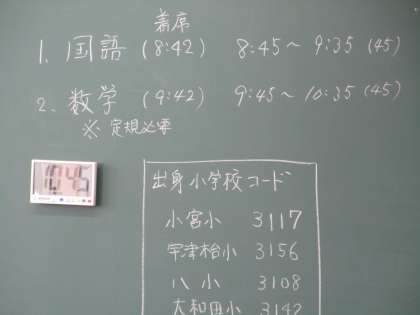 着席
1. 国語 (8:42) 8:45～9:35 (45)
2. 数学 (9:42) 9:45～10:35 (45)
※ 定規必要
出身小学校コード
小宮小 3117
宇津木台小 3156
八小 3108
大和田小 3142